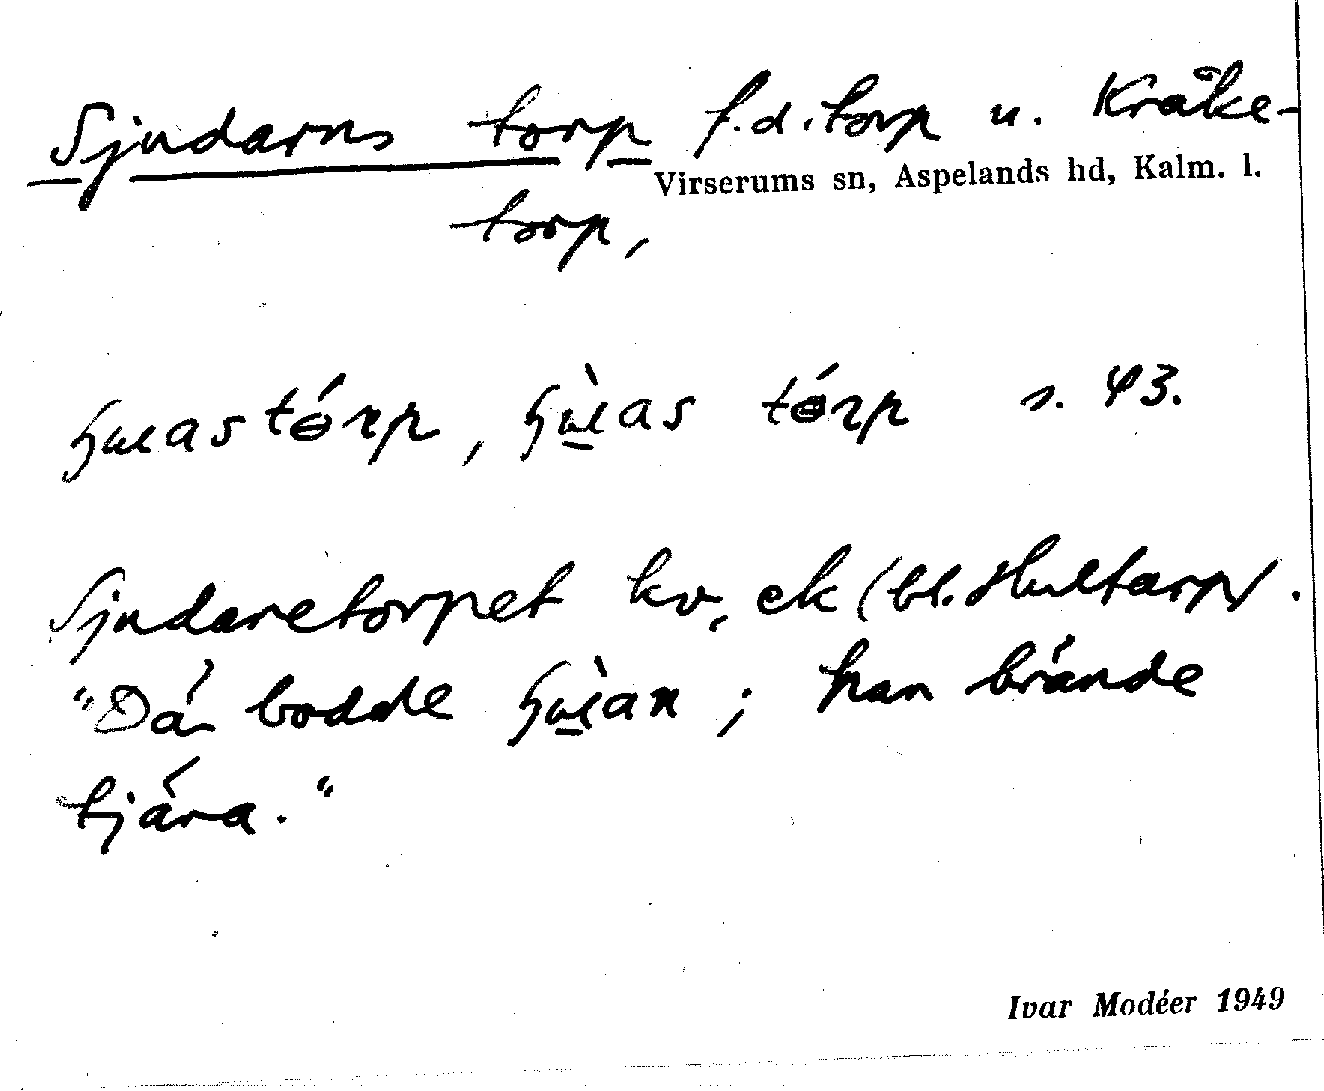 Sjudarns torp f.d. torp u. Kråke-
Virserums sn, Aspelands hd, Kalm. l.
torp,
s. 43.
Sjudaretorpet kv, ek (bl. Hultarp).
"Där bodde ; han brände
tjära."
Ivar Modéer 1949